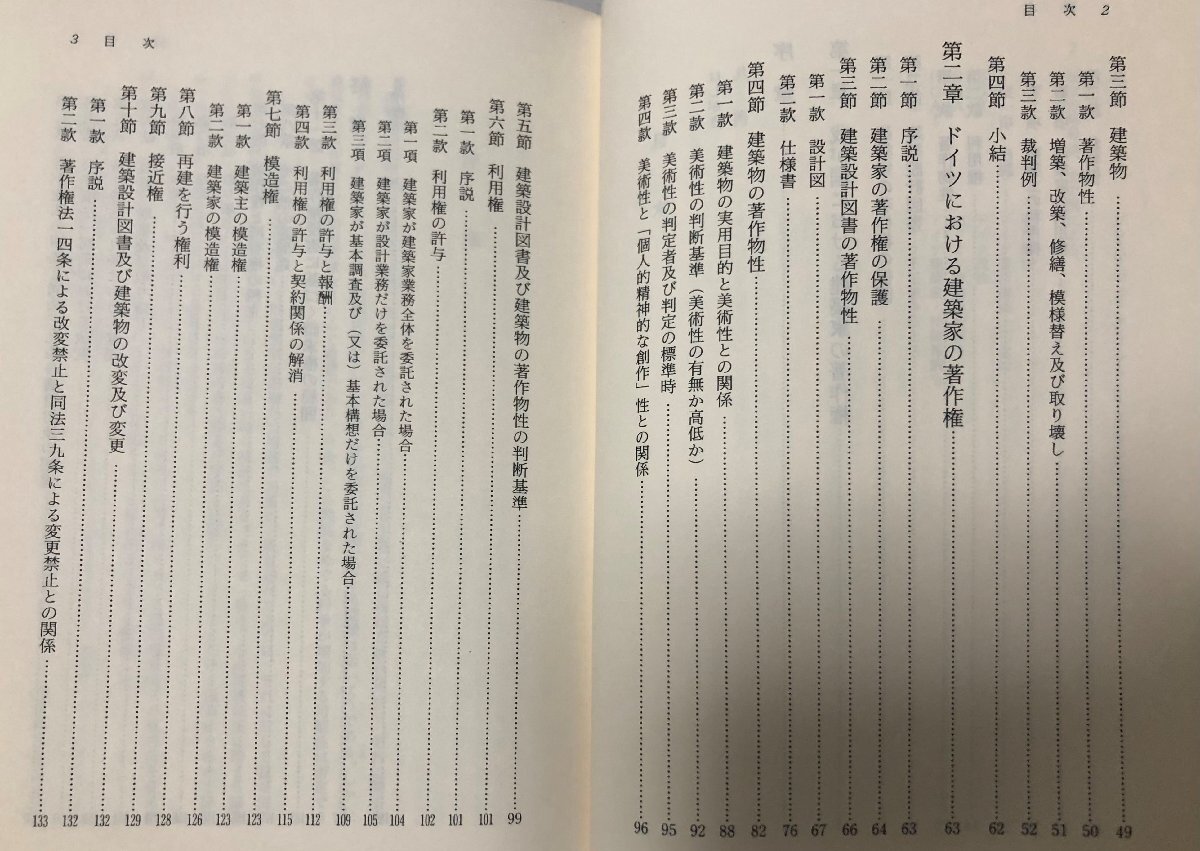 目次 2
第三節 建築物 49
第一款 著作物性 50
第二款 増築、改築、修繕、模様替え及び取り壊し 51
第三款 裁判例 52
第四節 小結 62
第二章 ドイツにおける建築家の著作権 63
第一節 序説 63
第二節 建築家の著作権の保護 64
第三節 建築設計図書の著作物性 66
第一款 設計図 67
第二款 仕様書 76
第四節 建築物の著作物性 82
第一款 建築物の実用目的と美術性との関係 88
第二款 美術性の判断基準(美術性の有無か高低か) 92
第三款 美術性の判定者及び判定の標準時 95
第四款 美術性と「個人的精神的な創作」性との関係 96
3 目次
第五節 建築設計図書及び建築物の著作物性の判断基準 99
第六節 利用権 101
第一款 序説 101
第二款 利用権の許与 102
第一項 建築家が建築家業務全体を委託された場合 104
第二項 建築家が設計業務だけを委託された場合 105
第三項 建築家が基本調査及び(又は)基本構想だけを委託された場合 109
第三款 利用権の許与と報酬 112
第四款 利用権の許与と契約関係の解消 115
第七節 模造権 123
第一款 建築主の模造権 123
第二款 建築家の模造権 126
第八節 再建を行う権利 128
第九節 接近権 129
第十節 建築設計図書及び建築物の改変及び変更 132
第一款 序説 132
第二款 著作権法一四条による改変禁止と同法三九条による変更禁止との関係 133